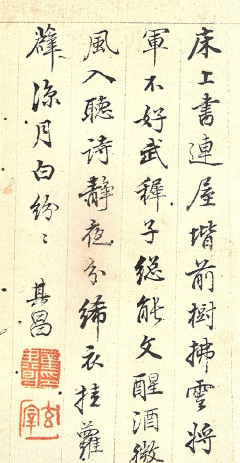 床上書連屋堦前樹拂雲將
軍不好武穉子總能文醒酒微
風入聽詩静夜分絺衣挂蘿
薜涼月白紛〻
其昌